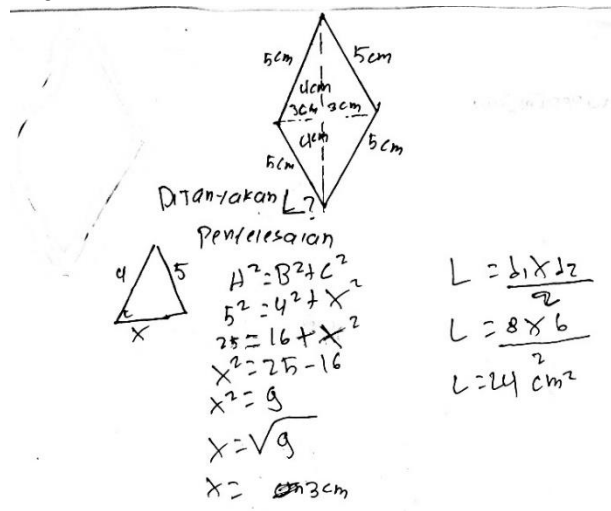 5cm 5cm
4cm
3cm 3cm
4cm
5cm 5cm
Ditanyakan L?
Penyelesaian
4 5
x
A² = B² + C²
5² = 4² + x²
25 = 16 + x²
x² = 25 - 16
x² = 9
x = √9
x = 3cm
L = d1 x d2
2
L = 8 x 6
2
L = 24 cm²